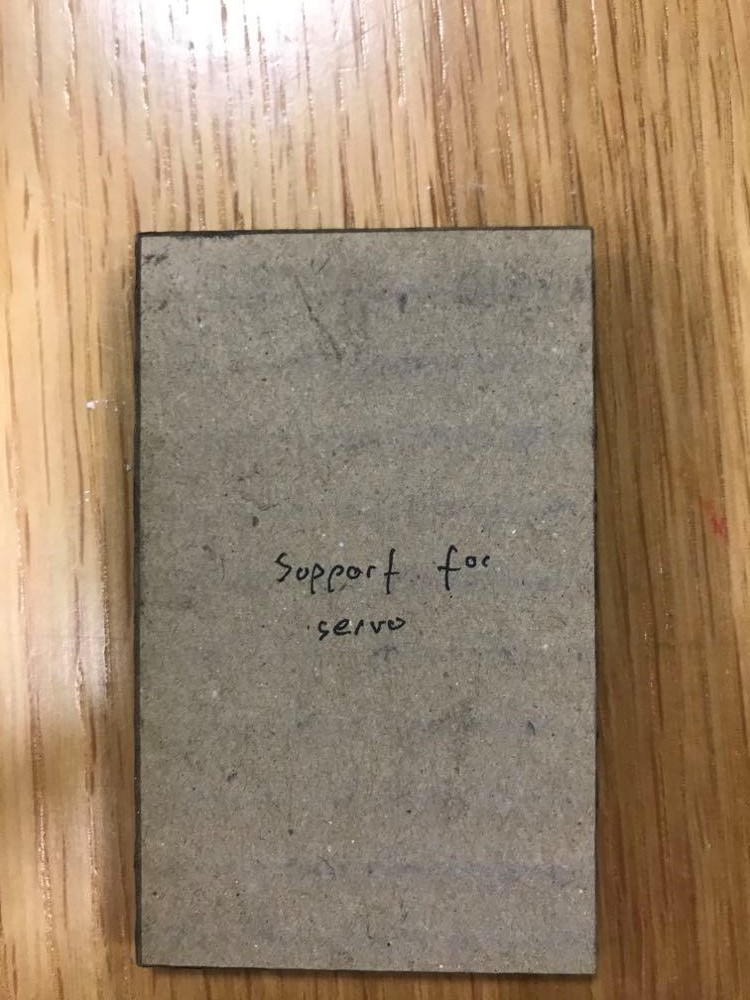 Support for
servo